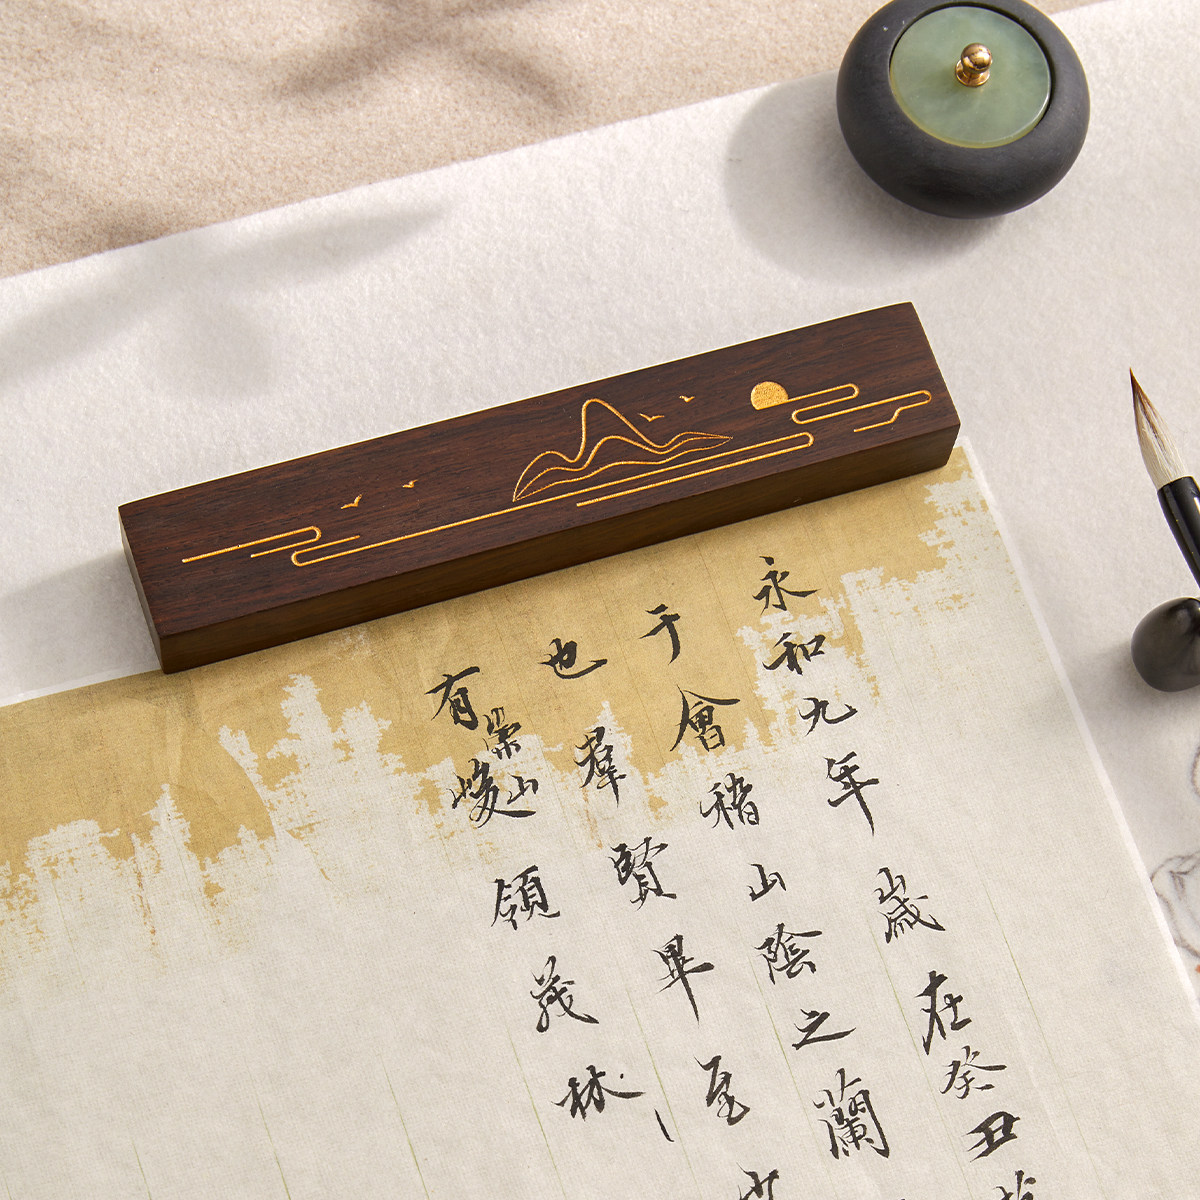 永和九年歲在癸丑
于會稽山陰之蘭
也羣賢畢至少
有崇山峻領茂林